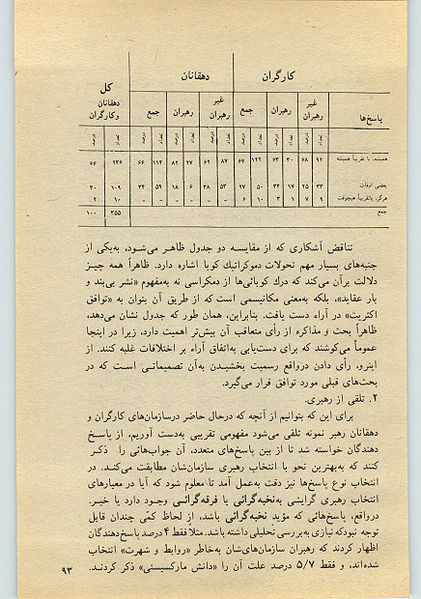 کارگران دهقانان کل
پاسخ‌ها غیر رهبران رهبران جمع غیر رهبران رهبران جمع دهقانان وکارگران
تعداد درصد تعداد درصد تعداد درصد تعداد درصد تعداد درصد تعداد درصد تعداد درصد
همیشه، یا تقریباً همیشه ۹۲ ۶۸ ۳۰ ۶۳ ۱۲۲ ۶۷ ۸۷ ۶۲ ۲۷ ۸۲ ۱۱۴ ۶۶ ۲۳۶ ۶۶
بعضی اوقات ۳۳ ۲۵ ۱۷ ۳۴ ۵۰ ۲۷ ۵۳ ۳۸ ۶ ۱۸ ۵۹ ۳۴ ۱۰۹ ۳۰
هرگز، یاتقریباً هیچوقت ۹ ۷ ۱ ۳ ۱۰ ۶ - - - - - - ۱۰ ۲
جمع ۳۵۵ ۱۰۰
تناقض آشکاری که از مقایسه دو جدول ظاهر می‌شود، به‌یکی از
جنبه‌های بسیار مهم تحولات دموکراتیك کوبا اشاره دارد. ظاهراً همه چیز
دلالت برآن می‌کند که درك کوبائی‌ها از دمکراسی نه به‌مفهوم «نشر بی‌بند و
بار عقاید»، بلکه به‌معنی مکانیسمی است که از طریق آن بتوان به «توافق
اکثریت» در آراء دست یافت. بنابراین، همان طور که جدول نشان می‌دهد،
ظاهراً بحث و مذاکره از رأی متعاقب آن بیش‌تر اهمیت دارد، زیرا در اینجا
عموماً می‌کوشند که برای دست‌یابی به‌اتفاق آراء بر اختلافات غلبه کنند. از
اینرو، رأی دادن درواقع رسمیت بخشیدن به‌آن تصمیماتی است که در
بحث‌های قبلی مورد توافق قرار می‌گیرد.
۲. تلقی از رهبری.
برای این که بتوانیم از آنچه که درحال حاضر درسازمان‌های کارگران و
دهقانان رهبر نمونه تلقی می‌شود مفهومی تقریبی به‌دست آوریم، از پاسخ
دهندگان خواسته شد تا از بین پاسخ‌های متعدد، آن جواب‌هائی را ذکر
کنند که به‌بهترین نحو با انتخاب رهبری سازمان‌شان مطابقت می‌کند. در
انتخاب نوع پاسخ‌ها نیز دقت به‌عمل آمد تا معلوم شود که آیا در معیارهای
انتخاب رهبری گرایشی به‌نخبه‌گرائی یا فرقه‌گرائی وجود دارد یا خیر.
درواقع، پاسخ‌هائی که مؤید نخبه‌گرائی باشد، از لحاظ کمّی چندان قابل
توجه نبودکه نیازی به‌بررسی تحلیلی داشته باشد. مثلاً فقط ۴ درصد پاسخ‌دهندگان
اظهار کردند که رهبران سازمان‌های‌شان به‌خاطر «روابط و شهرت» انتخاب
شده‌اند، و فقط ۵/۷ درصد علت آن را «دانش مارکسیستی» ذکر کردند.
۹۳